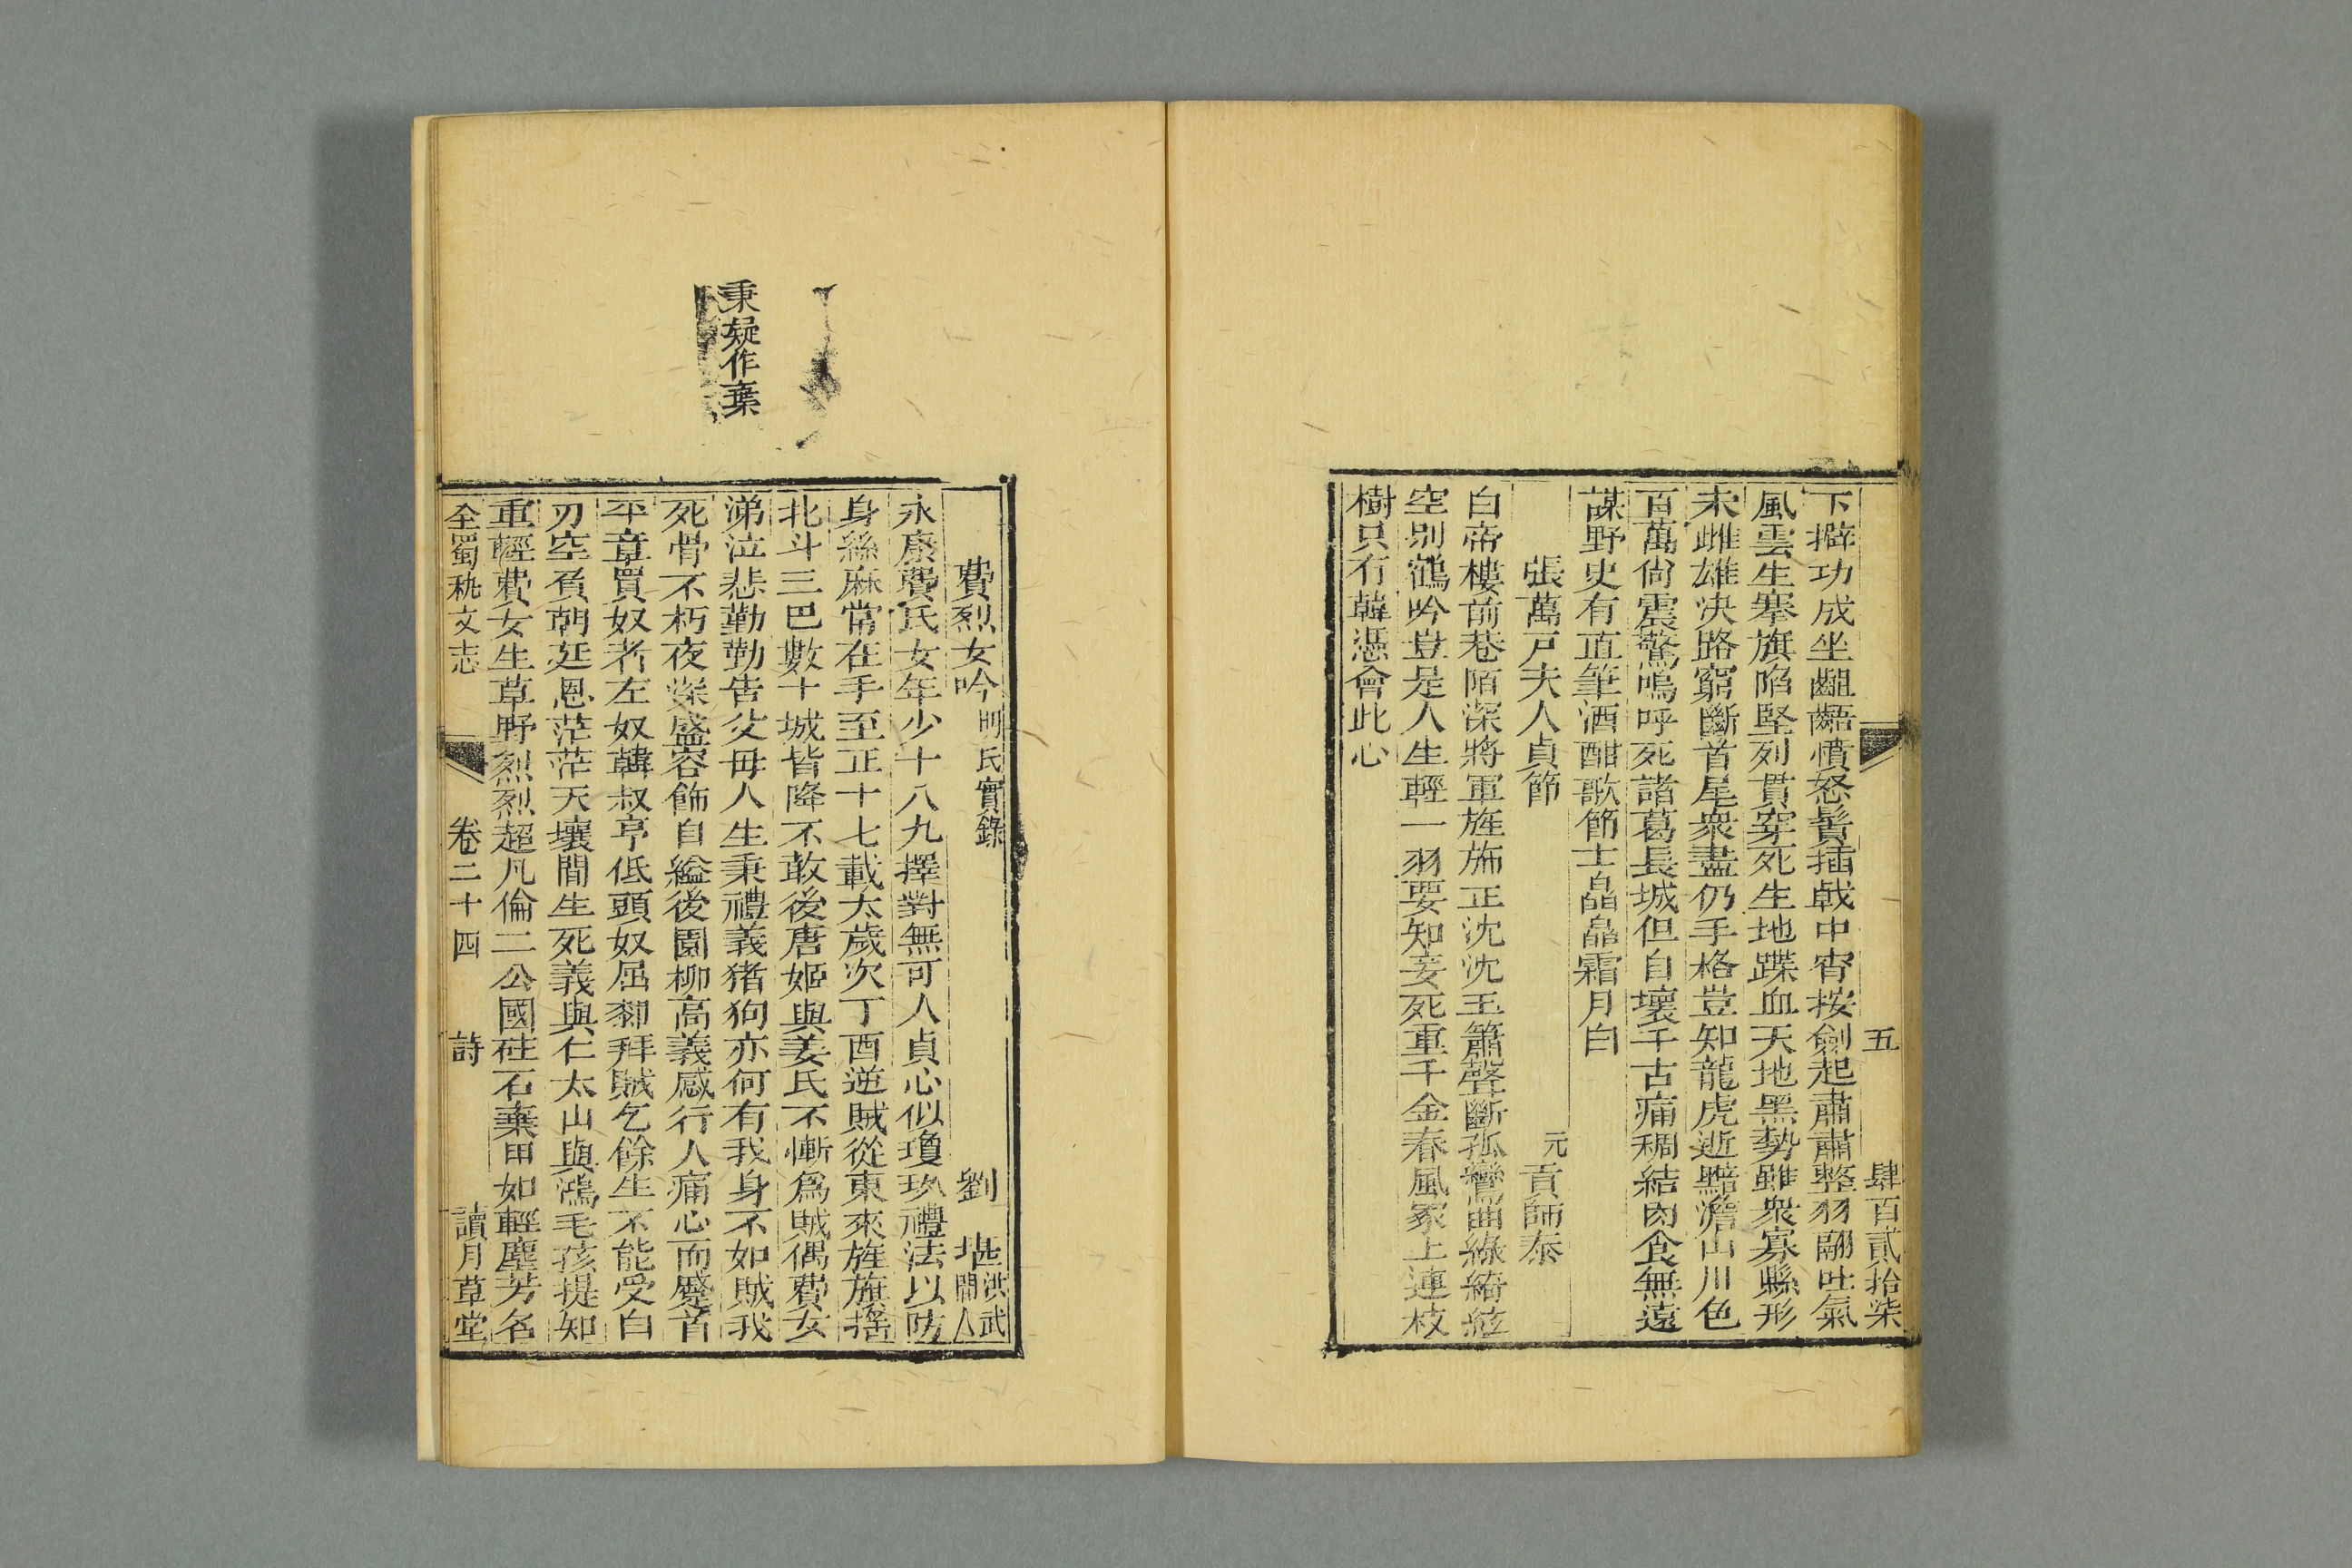 五 肆百貳拾柒
下擗功成坐齟齬憤怒鬢插戟中宵按劍起肅肅整羽翮吐氣
風雲生搴旗陷堅列貫穿死生地蹀血天地黑勢雖衆寡縣形
未雌雄決路窮斷首尾衆盡仍手格豈知龍虎逝黯澹山川色
百萬尙震驚嗚呼死諸葛長城但自壞千古痛稠結肉食無遠
謀野史有直筆酒酣歌節士晶晶霜月白
張萬戸夫人貞節 元 貢師泰
白帝樓前巷陌深將軍旌斾正沈沈玉簫聲斷孤鸞曲綠綺絃
空别鶴吟豈是人生輕一羽要知妾死重千金春風冢上連枝
樹只有韓憑會此心
費烈女吟 明氏實錄 劉堪 洪武間人
永康費氏女年少十八九擇對無可人貞心似瓊玖禮法以防
身絲麻常在手至正十七載太歲次丁酉逆賊從東來旌旗捨
北斗三巴數十城皆降不敢後唐姬與姜氏不慚爲賊偶費女
涕泣悲勤勤告父母人生秉禮義猪狗亦何有我身不如賊我
死骨不朽夜深盛容飾自縊後園柳高義感行人痛心而蹙首
平章買奴者左奴韓叔亨低頭奴屈㓞拜賊乞餘生不能受白
刃空負朝廷恩茫茫天壤間生死義與仁太山與鴻毛孩提知
重輕費女生草野烈烈超凡倫二公國砫石棄甲如輕塵芳名
全蜀秇文志 卷二十四 詩 讀月草堂
秉疑作棄